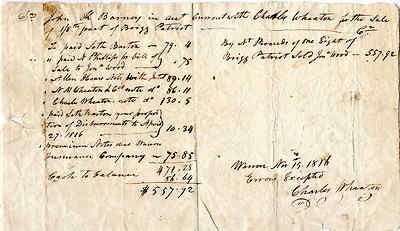 Dr John H Barney in acct Current with Charles Wheaton for the Sale
of 1/8th part of Brigg Patriot Cr
To paid Seth Barton — 79. 4
" paid N Phillips for bill of
Sale to Jona Wood — .75
" Allen Hoars Note with Int 89.14
" N. M Wheaton & Co note do 86.11
" Charls Wheaton note do 130.5
" paid Seth Barton your propor
tion of Disbursments to April
27. 1816 10.34
" premium Notes due Warren
Insurance Company — 75.85
471.28
Cash to balance 86.64
$557.92
By Nt Proceeds of one Eight of
Brigg Patriot Sold Jona Wood — 557.92
Warren Nov 14, 1816
Errors Excepted
Charles Wheaton